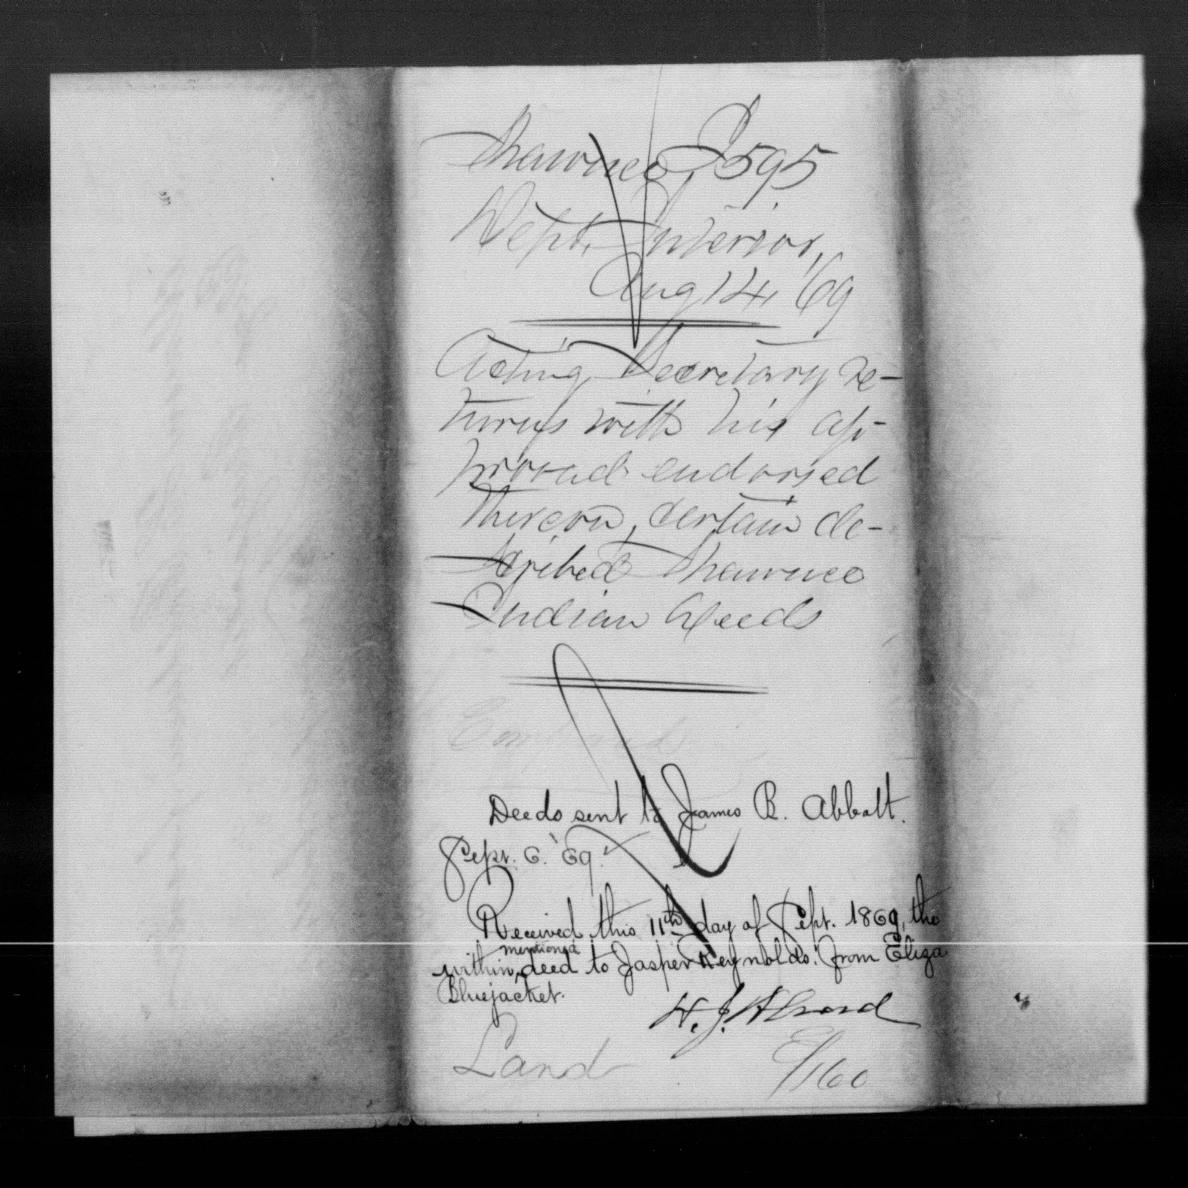 Shawnee, I 595
Dept. Interior,
Aug 14, '69
Acting Secretary re-
turns with his ap-
proval endorsed
thereon, certain de-
scribed Shawnee
Indian Deeds
Deeds sent to James B. Abbott.
Sept. 6. '69.
Received this 11th day of Sept. 1869, the
within mentioned deed to Jasper Reynolds. from Eliza
Bluejacket.
H. J.
Land